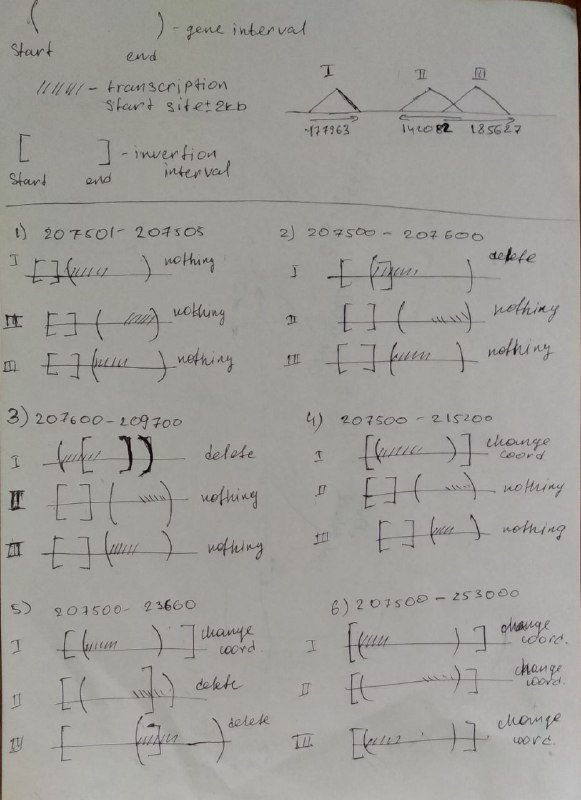 ( ) - gene interval
start end
- transcription
start site ± 2kb
[ ] - invertion
interval
start end
I II III
177963 142082 185627
1) 207501 - 207505
I [ ] ( ) nothing
III [ ] ( ) nothing
III [ ] ( ) nothing
2) 207500 - 207600
I [ ( ] ) delete
II [ ] ( ) nothing
III [ ] ( ) nothing
3) 207600 - 209700
I ( [ ] ) delete
II [ ] ( ) nothing
III [ ] ( ) nothing
4) 207500 - 215200
I [ ( ) ] change
coord
II [ ] ( ) nothing
III [ ] ( ) nothing
5) 207500 - 23660
I [ ( ) ] change
coord
II [ ( ] ) delete
[ ( ] ) delete
6) 207500 - 253000
I [ ( ) ] change
coord.
II [ ( ) ] change
coord.
III [ ( ) ] change
coord.